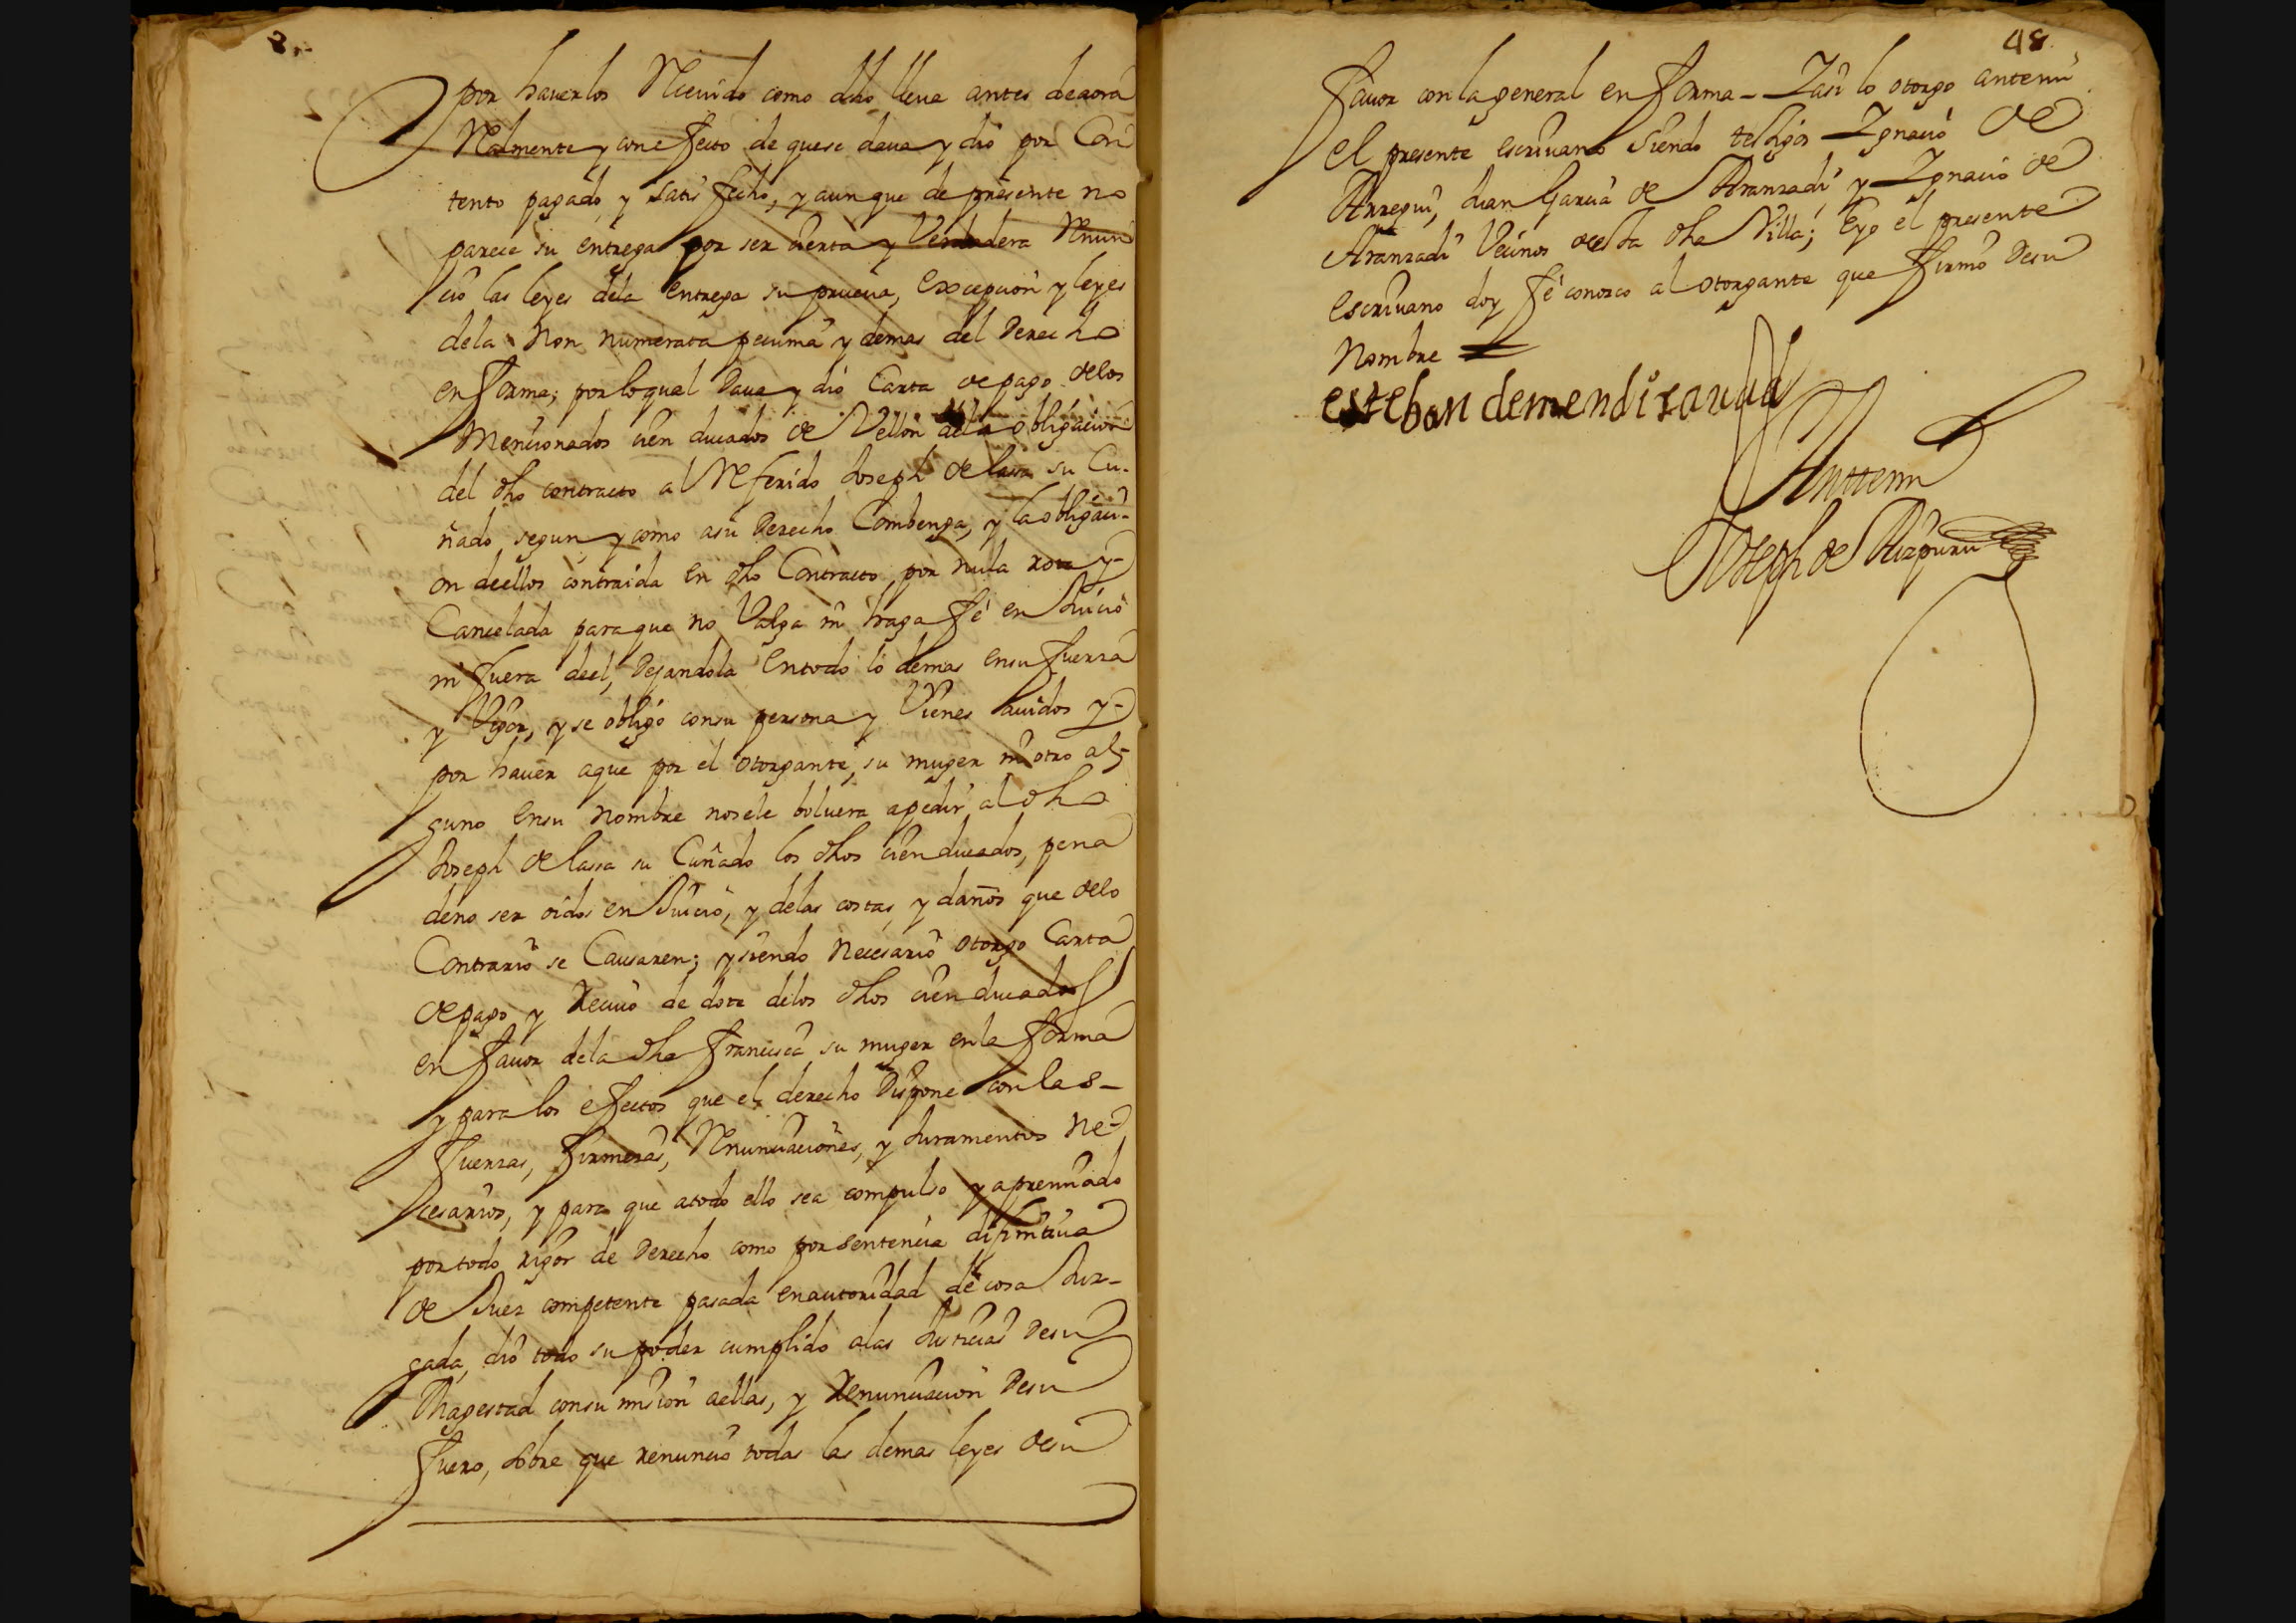 por hauerlos Receuido como dho lleua antes deaora
Realmente y con efecto de quese daua y dio por Con
tento pagado y satisfecho, y aunque de presente no
parece su entrega por ser cierta y Verdadera Renun
cio las leyes dela entrega su prueua, excepcion y leyes
dela Non numerata pecunia y demas del Derecho
en forma; por lo qual Daua y dio Carta de pago delos
Mencionados cien ducados de Vellon dela obligacion
del dho contracto al Referido Joseph de lassa su Cu-
ñado segun y como asu Derecho Combenga, y la obligaci-
on deellos contraida en dho Contracto por nula rota y-
Cancelada paraque no Valga ni haga fé en Juicio
ni fuera deel, Dejandola entodo lo demas ensu fuerza
y Vigor, y se obligó consu persona y Vienes auidos y-
por hauer aque por el otorgante, su muger ni otro al-
guno ensu nombre nosele boluera apedir al dho
Joseph de lassa su Cuñado los dhos cien ducados, pena
deno ser oidos en Juicio, y delas costas y daños que delo
Contrario se Causaren; y siendo necesario otorgo Carta
de pago y Reciuo de dote delos dhos cien ducados
en fauor dela dha Francisca su muger enla forma
y para los efectos que el derecho Dispone con las-
fuerzas, firmezas, Renunciaciones, y Juramentos ne-
cesarios, y para que atodo ello sea compulso y apremiado
portodo rigor de Derecho como por sentencia difinitiua
de Juez competente pasada en autoridad de cosa Juz-
gada, dio todo su poder cumplido alas Justicias Desu
Magestad consu mision aellas, y Renunciacion Desu
fuero, sobre que renuncio todas las demas leyes desu
48
fauor con la general en forma - Iasi lo otorgo antemi
el presente escriuano Siendo testigos Ignacio de
Arregui, Juan Garcia de Aranzadi, y Ignacio de
Aranzadi Vecinos desta dha Villa; E yo el presente
escriuano doy fé conozco al otorgante que firmó Desu
Nombre
esteban demendizaual
Anttemi
Joseph de Aizpuru